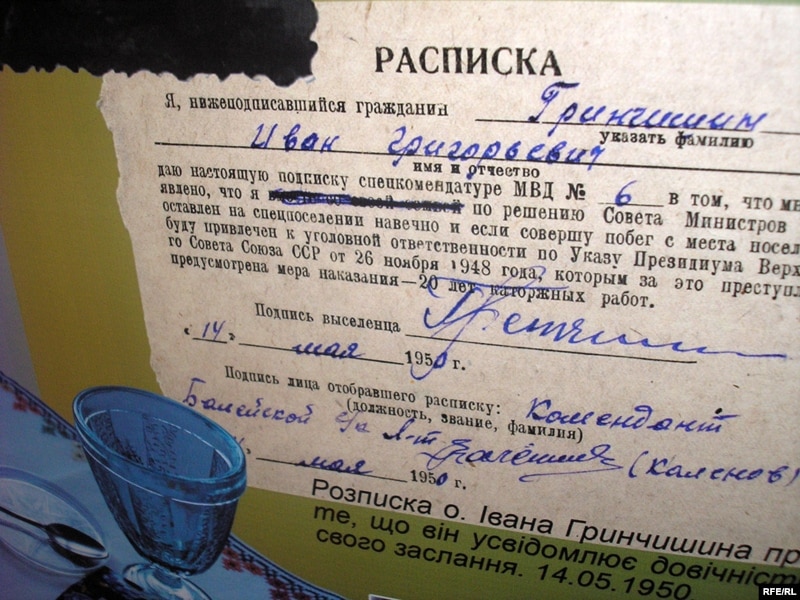 РАСПИСКА
Я, нижеподписавшийся гражданин Гринчишин
указать фамилию
Иван Григорьевич
имя и отчество
даю настоящую подписку спецкомендатуре МВД № 6 в том, что мн
явлено, что я по решению Совета Министров
оставлен на спецпоселении навечно и если совершу побег с места посел
буду привлечен к уголовной ответственности по Указу Президиума Верх
го Совета Союза ССР от 26 ноября 1948 года, которым за это преступл
предусмотрена мера наказания—20 лет каторжных работ.
Подпись выселенца
„14" мая 1950 г.
Подпись лица отобравшего расписку: Комендант
(должность, звание, фамилия)
Балейской с/к л-т (Каленов)
мая 1950 г.
Розписка о. Івана Гринчишина пр
те, що він усвідомлює довічніст
свого заслання. 14.05.1950
RFE/RL